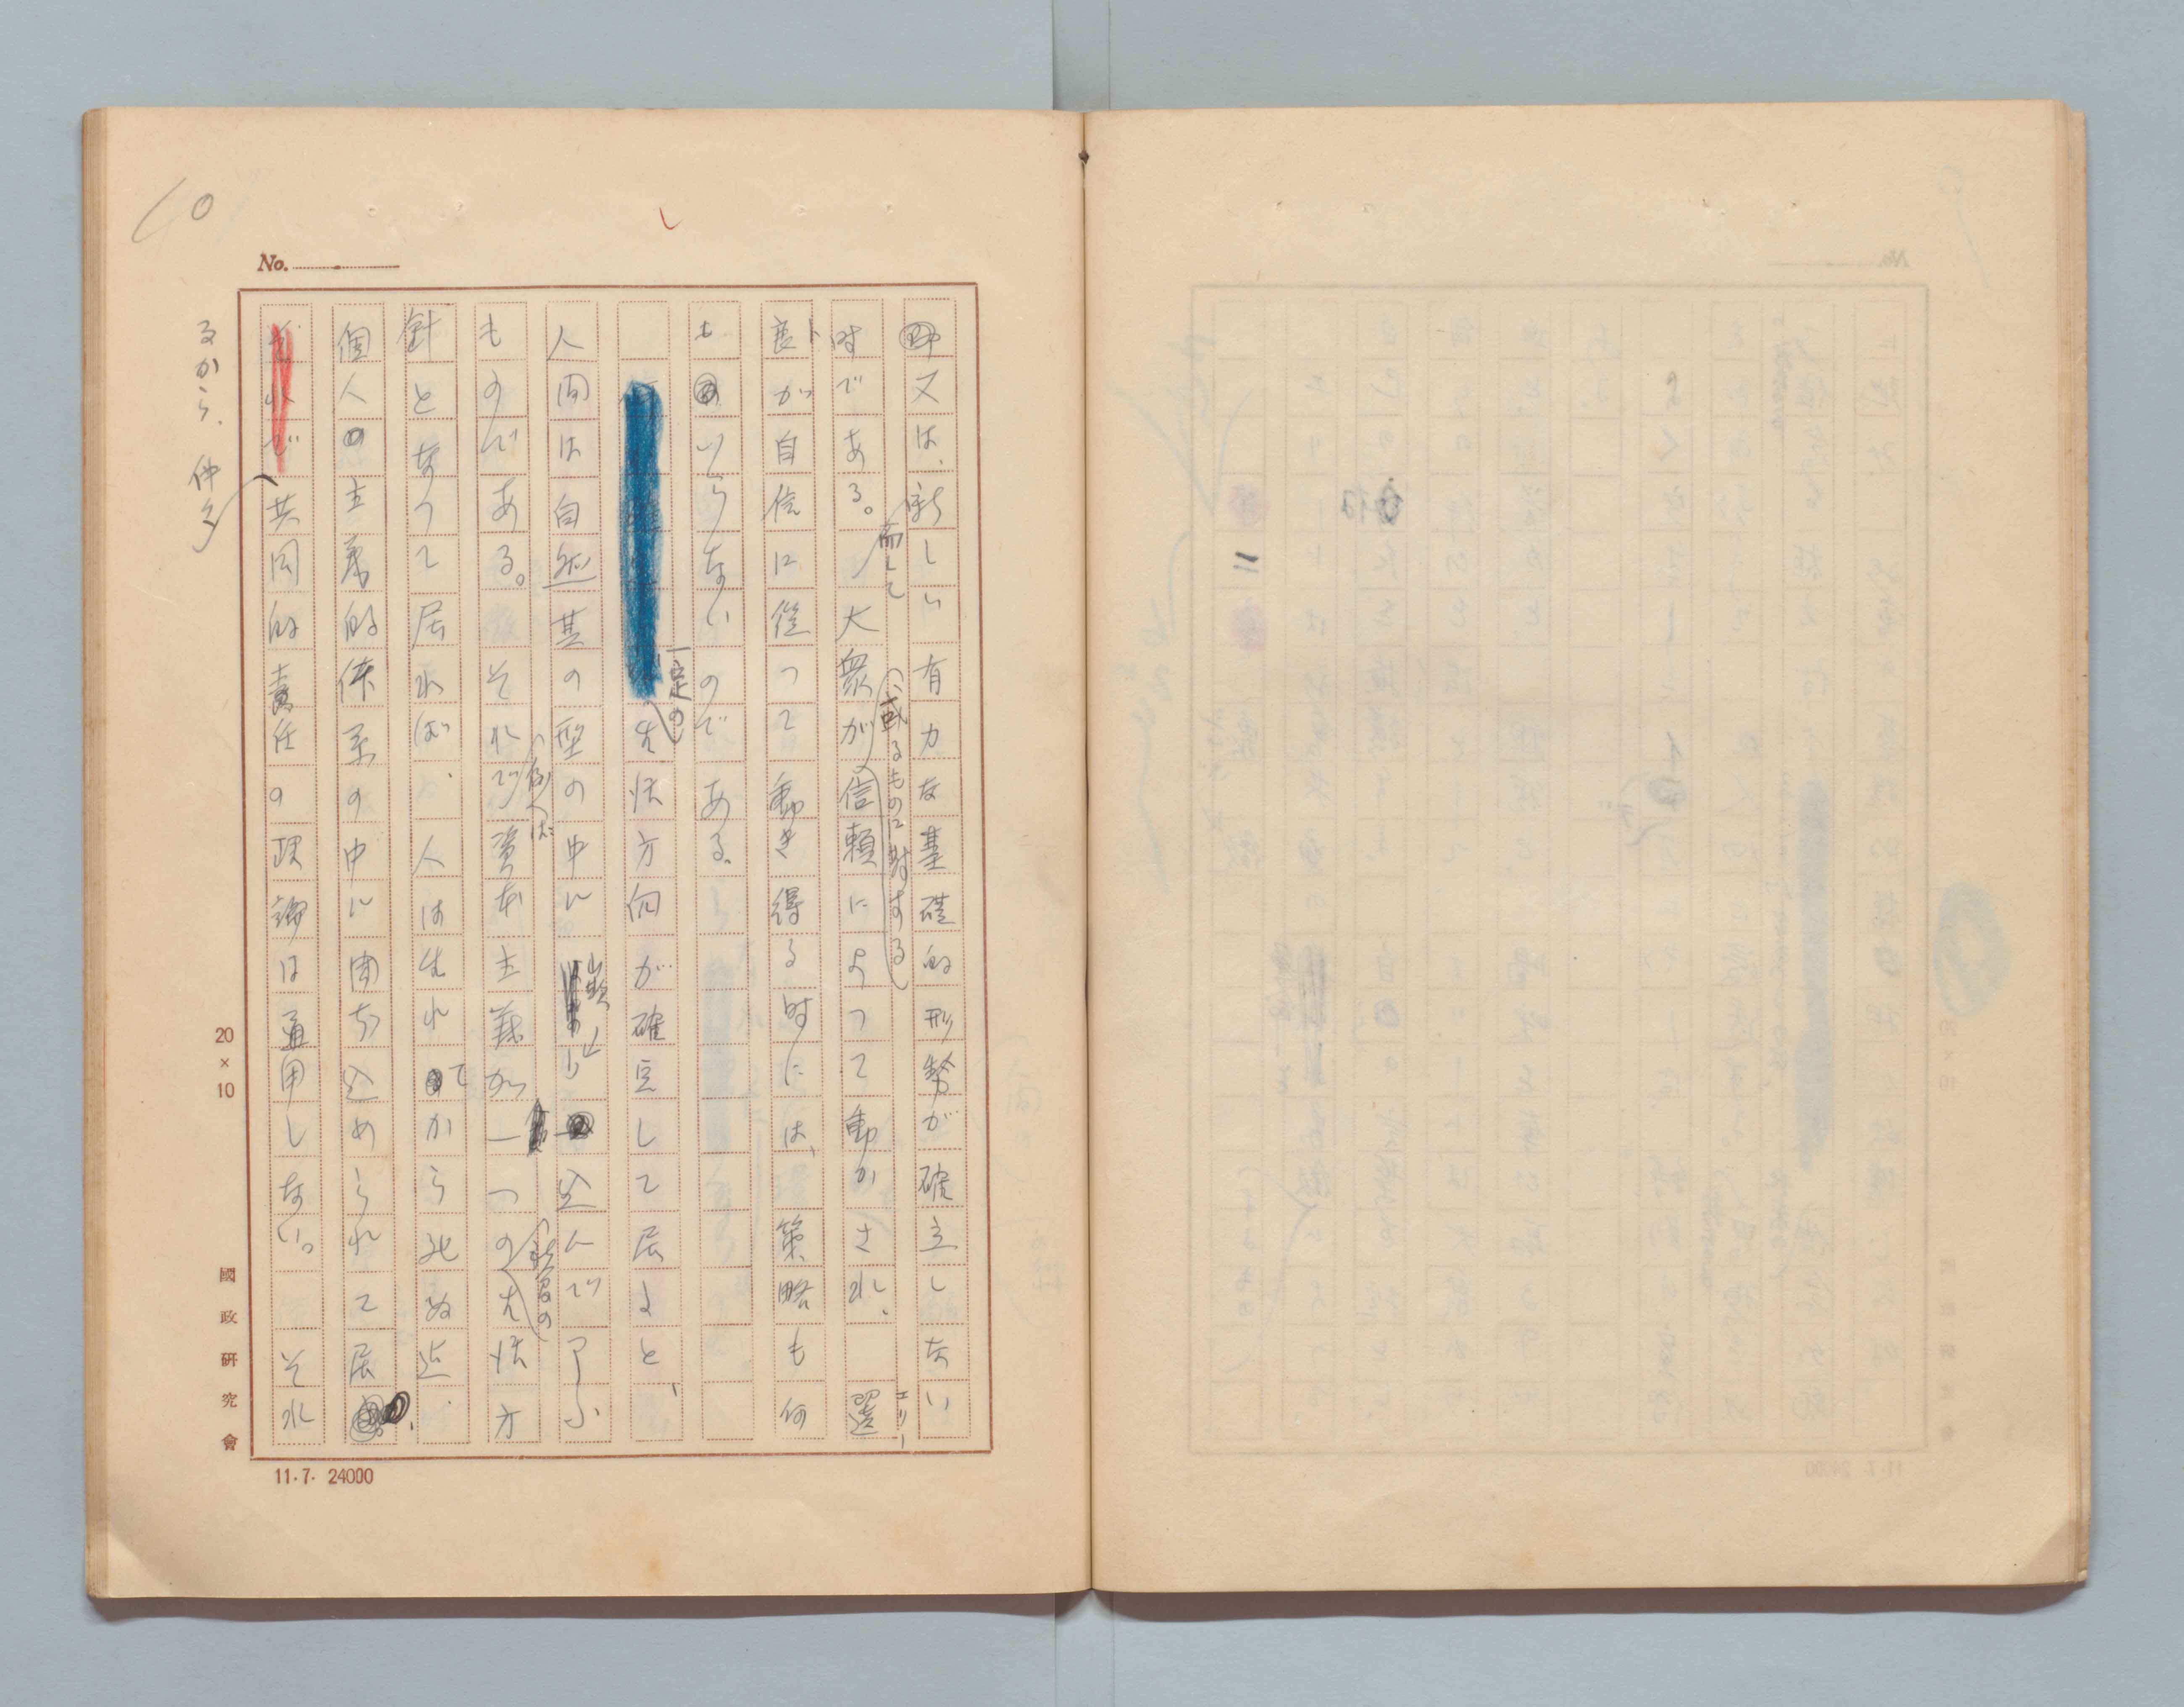 10
No.
又は、新しい有力な基礎的形勢が確立しない
時である。而して大衆が(或るものに対する)信頼によつて動かされ、選
エリー
ト
良が自信に従つて動き得る時には、策略も何
もいらないのである。
一定の生活方向が確立して居ると、
人間は自然其の型の中に嵌り込んで了ふ
ものである。それで(例へば)資本主義が一つの生活方
針となつて居れば、人は生れてから死ぬ迄、
個人主義的体系の中に閉ぢ込められて居
るから、仲々
共同的責任の理論は通用しない。それ
20×10
國政研究會
11.7. 24000